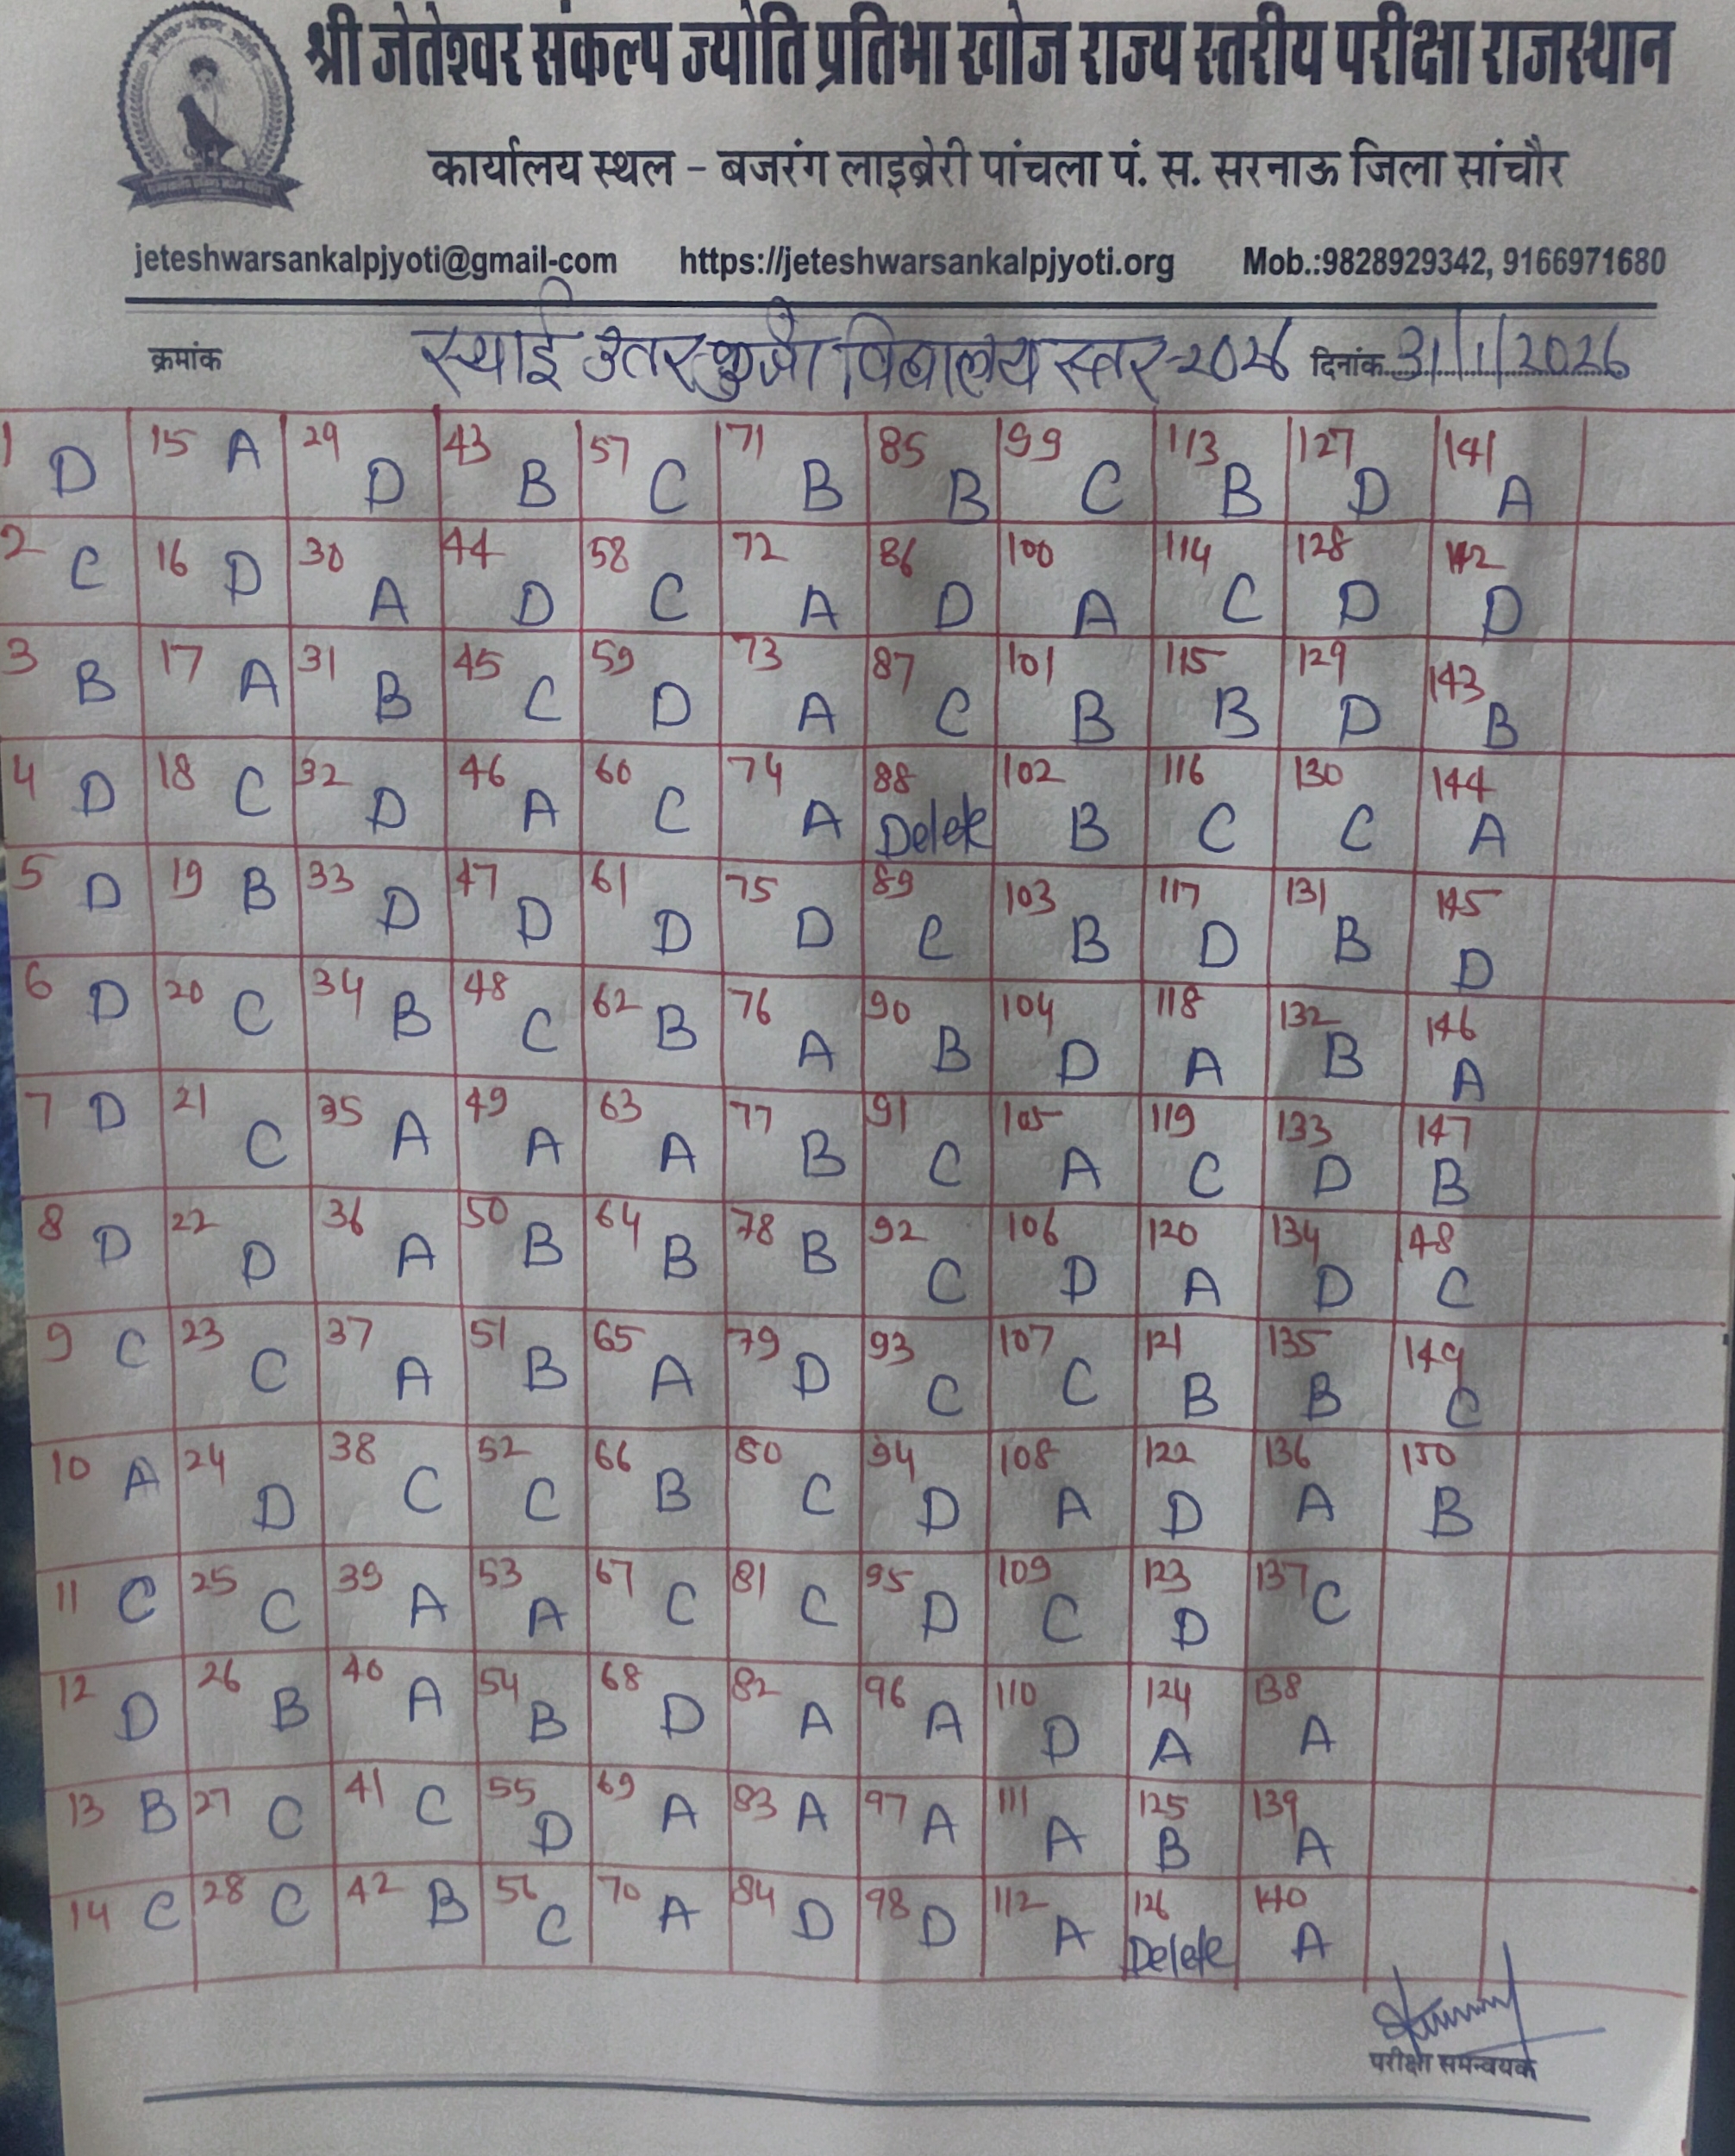 श्री जेतेश्वर संकल्प ज्योति प्रतिभा खोज राज्य स्तरीय परीक्षा राजस्थान
कार्यालय स्थल - बजरंग लाइब्रेरी पांचला पं. स. सरनाऊ जिला सांचौर
jeteshwarsankalpjyoti@gmail-com https://jeteshwarsankalpjyoti.org Mob.:9828929342, 9166971680
क्रमांक स्थाई उत्तर कुंजी विद्यालय स्तर-2026 दिनांक 31/1/2026
1 D 15 A 29 D 43 B 57 C 71 B 85 B 99 C 113 B 127 D 141 A
2 C 16 D 30 A 44 D 58 C 72 A 86 D 100 A 114 C 128 D 142 D
3 B 17 A 31 B 45 C 59 D 73 A 87 C 101 B 115 B 129 D 143 B
4 D 18 C 32 D 46 A 60 C 74 A 88 Delete 102 B 116 C 130 C 144 A
5 D 19 B 33 D 47 D 61 D 75 D 89 C 103 B 117 D 131 B 145 D
6 D 20 C 34 B 48 C 62 B 76 A 90 B 104 D 118 A 132 B 146 A
7 D 21 C 35 A 49 A 63 A 77 B 91 C 105 A 119 C 133 D 147 B
8 D 22 D 36 A 50 B 64 B 78 B 92 C 106 D 120 A 134 D 148 C
9 C 23 C 37 A 51 B 65 A 79 D 93 C 107 C 121 B 135 B 149 C
10 A 24 D 38 C 52 C 66 B 80 C 94 D 108 A 122 D 136 A 150 B
11 C 25 C 39 A 53 A 67 C 81 C 95 D 109 C 123 D 137 C
12 D 26 B 40 A 54 B 68 D 82 A 96 A 110 D 124 A 138 A
13 B 27 C 41 C 55 D 69 A 83 A 97 A 111 A 125 B 139 A
14 C 28 C 42 B 56 C 70 A 84 D 98 D 112 A 126 Delete 140 A
परीक्षा समन्वयक